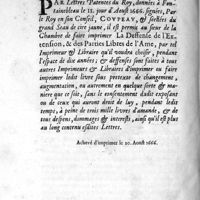 PAR Lettres Patentes du Roy, données à Fon-
tainebleau le 12. jour d'Aoust 1666. signées, Par
le Roy en son Conseil, COUPEAU, & scellées
du grand Seau de cire jaune, il est permis au sieur de la
Chambre de faire imprimer La Deffense de l'Ex-
tension, & des Parties Libres de l'Ame, par tel
Imprimeur & Libraire qu'il voudra choisir, pendant
l'espace de dix années; & deffenses sont faites à tous
autres Imprimeurs & Libraires d'imprimer ou faire
imprimer ledit livre sous pretexte de changement,
augmentation, ou autrement en quelque sorte & ma-
niere que ce soit, sans le consentement dudit exposant
ou de ceux qui auront droit de luy, pendant ledit
temps, à peine de trois mille livres d'amande, & de
tous despens, dommages & interests, ainsi qu'il est plus
au long contenu esdites Lettres.
Achevé d'imprimer le 20. Aoust 1666.